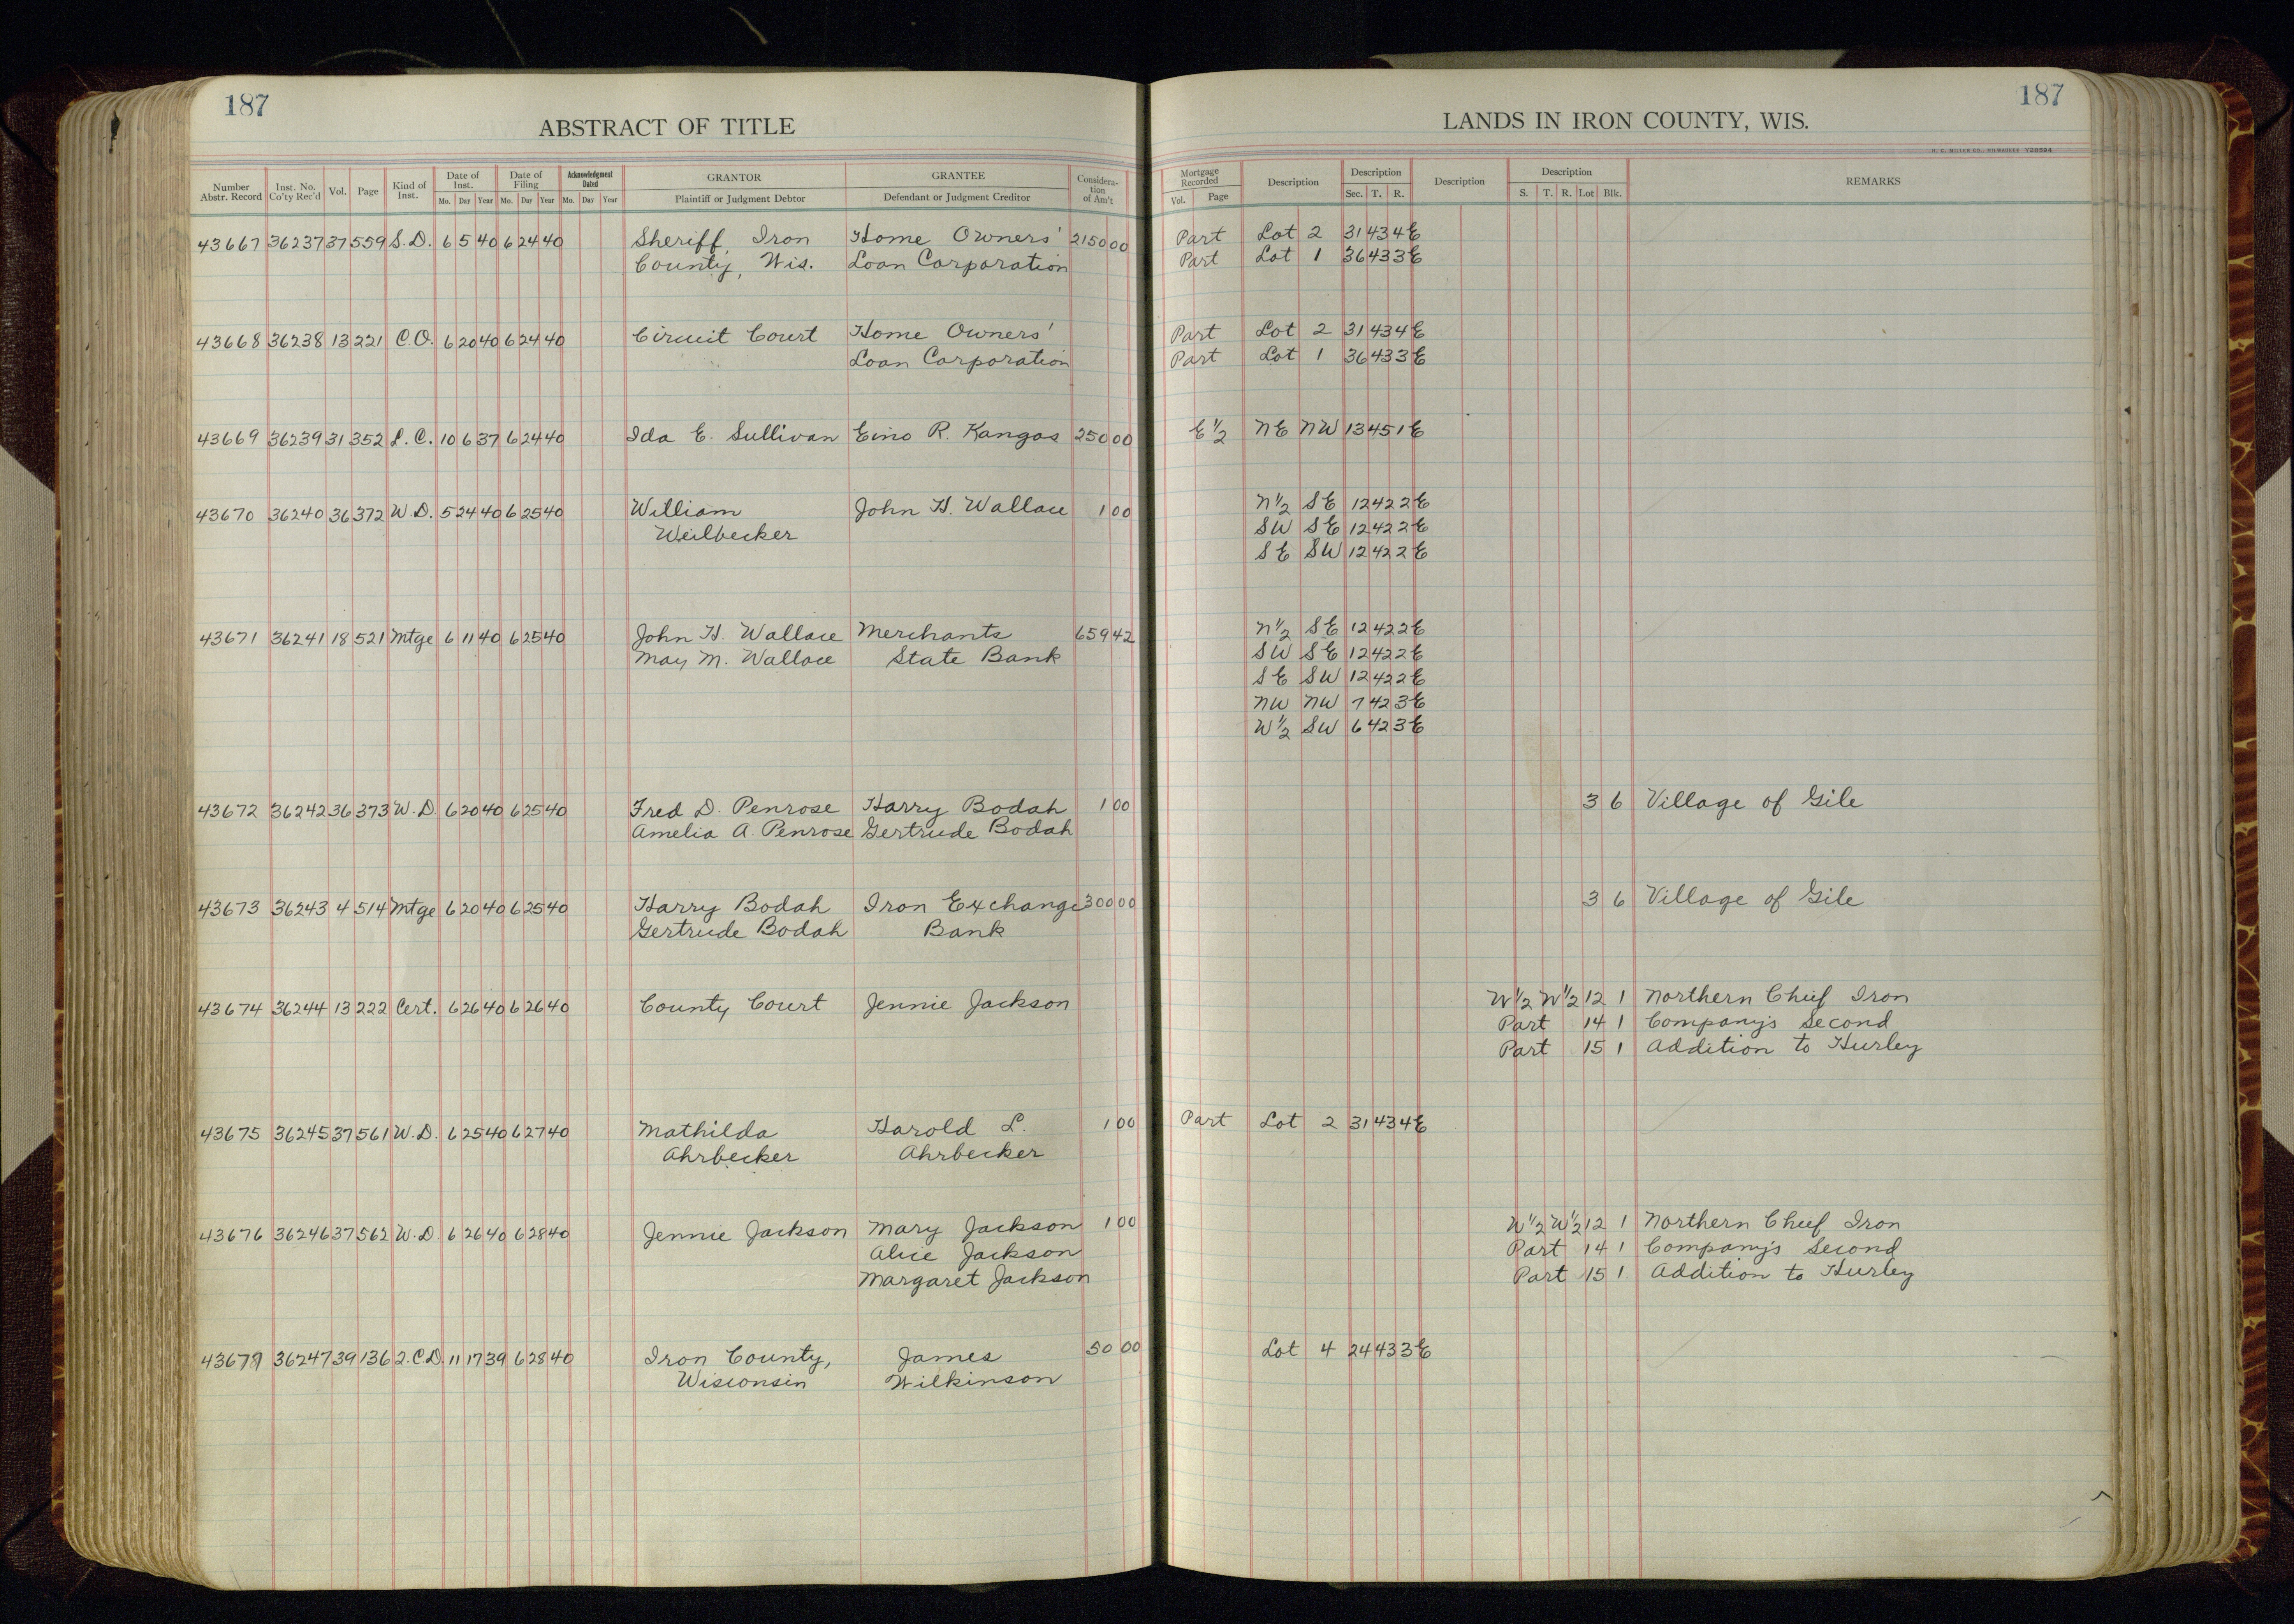 187
ABSTRACT OF TITLE
Number Abstr. Record Inst. No. Co'ty Rec'd Vol. Page Kind of Inst. Date of Inst. Mo. Day Year Date of Filing Mo. Day Year Acknowledgment Dated Mo. Day Year GRANTOR Plaintiff or Judgment Debtor GRANTEE Defendant or Judgment Creditor Consideration of Am't
43667 36237 37 559 S.D. 6 5 40 6 24 40 Sheriff, Iron Home Owners' 2150 00
County, Wis. Loan Corporation
43668 36238 13 221 C.O. 6 20 40 6 24 40 Circuit Court Home Owners'
Loan Corporation
43669 36239 31 352 L.C. 10 6 37 6 24 40 Ida E. Sullivan Eino R. Kangas 250 00
43670 36240 36 372 W.D. 5 24 40 6 25 40 William John H. Wallace 1 00
Weilbecker
43671 36241 18 521 Mtge 6 11 40 6 25 40 John H. Wallace Merchants 659 42
May M. Wallace State Bank
43672 36242 36 373 W.D. 6 20 40 6 25 40 Fred D. Penrose Harry Bodah 1 00
Amelia A. Penrose Gertrude Bodah
43673 36243 4 514 Mtge 6 20 40 6 25 40 Harry Bodah Iron Exchange 300 00
Gertrude Bodah Bank
43674 36244 13 222 Cert. 6 26 40 6 26 40 County Court Jennie Jackson
43675 36245 37 561 W.D. 6 25 40 6 27 40 Mathilda Harold L. 1 00
Ahrbecker Ahrbecker
43676 36246 37 562 W.D. 6 26 40 6 28 40 Jennie Jackson Mary Jackson 1 00
Alice Jackson
Margaret Jackson
36247 39 136 2.C.D. 11 17 39 6 28 40 Iron County, James 50 00
Wisconsin Wilkinson
187
LANDS IN IRON COUNTY, WIS.
H. C. MILLER CO., MILWAUKEE
Mortgage Recorded Vol. Page Description Description Sec. T. R. Description Description S. T. R. Lot Blk. REMARKS
Part Lot 2 31 43 4E
Part Lot 1 36 43 3E
Part Lot 2 31 43 4E
Part Lot 1 36 43 3E
E½ NE NW 13 45 1E
N½ SE 12 42 2E
SW SE 12 42 2E
SE SW 12 42 2E
N½ SE 12 42 2E
SW SE 12 42 2E
SE SW 12 42 2E
NW NW 7 42 3E
W½ SW 6 42 3E
3 6 Village of Gile
3 6 Village of Gile
W½ W½ 12 1 Northern Chief Iron
Part 14 1 Company's Second
Part 15 1 Addition to Hurley
Part Lot 2 31 43 4E
W½ W½ 12 1 Northern Chief Iron
Part 14 1 Company's Second
Part 15 1 Addition to Hurley
Lot 4 24 43 3E